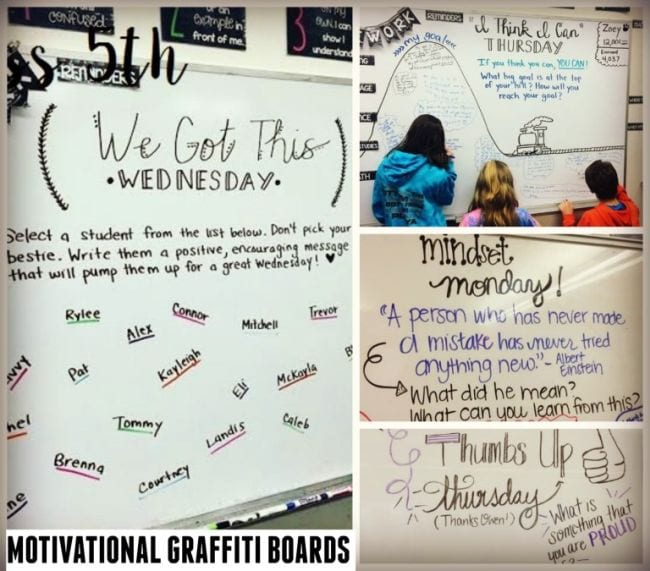 confused.
example in
front of me.
OWN. I can
show I
understand
ss 5th
REMINDERS
We Got This
•WEDNESDAY•
Select a student from the list below. Don't pick your
bestie. Write them a positive, encouraging message
that will pump them up for a great Wednesday! ♥
Rylee
Connor
Trevor
Alex
Mitchell
Pat
Kayleigh
McKayla
Eli
Tommy
Landis
Caleb
Brenna
Courtney
MOTIVATIONAL GRAFFITI BOARDS
WORK
REMINDERS
"I Think I Can"
THURSDAY
If you think you can, YOU CAN!
What big goal is at the top
of your hill? How will you
reach your goal?
my goal
Zney
12,000
4,037
mindset
monday!
"A person who has never made
a mistake has never tried
anything new." - Albert
Einstein
What did he mean?
What can you learn from this?
Thumbs Up
Thursday
(Thanks Owen!)
What is
something that
you are PROUD